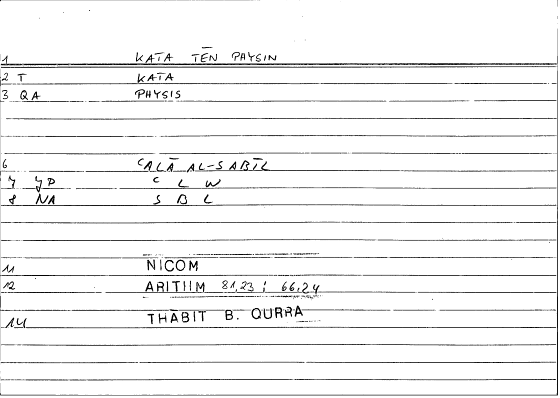 1 KATA TĒN PHYSIN
2 T KATA
3 QA PHYSIS
6 ʿALĀ AL-SABĪL
7 YP ʿ L W
8 NA S B L
11 NICOM
12 ARITHM 81,23 ; 66,24
14 THĀBIT B. QURRA